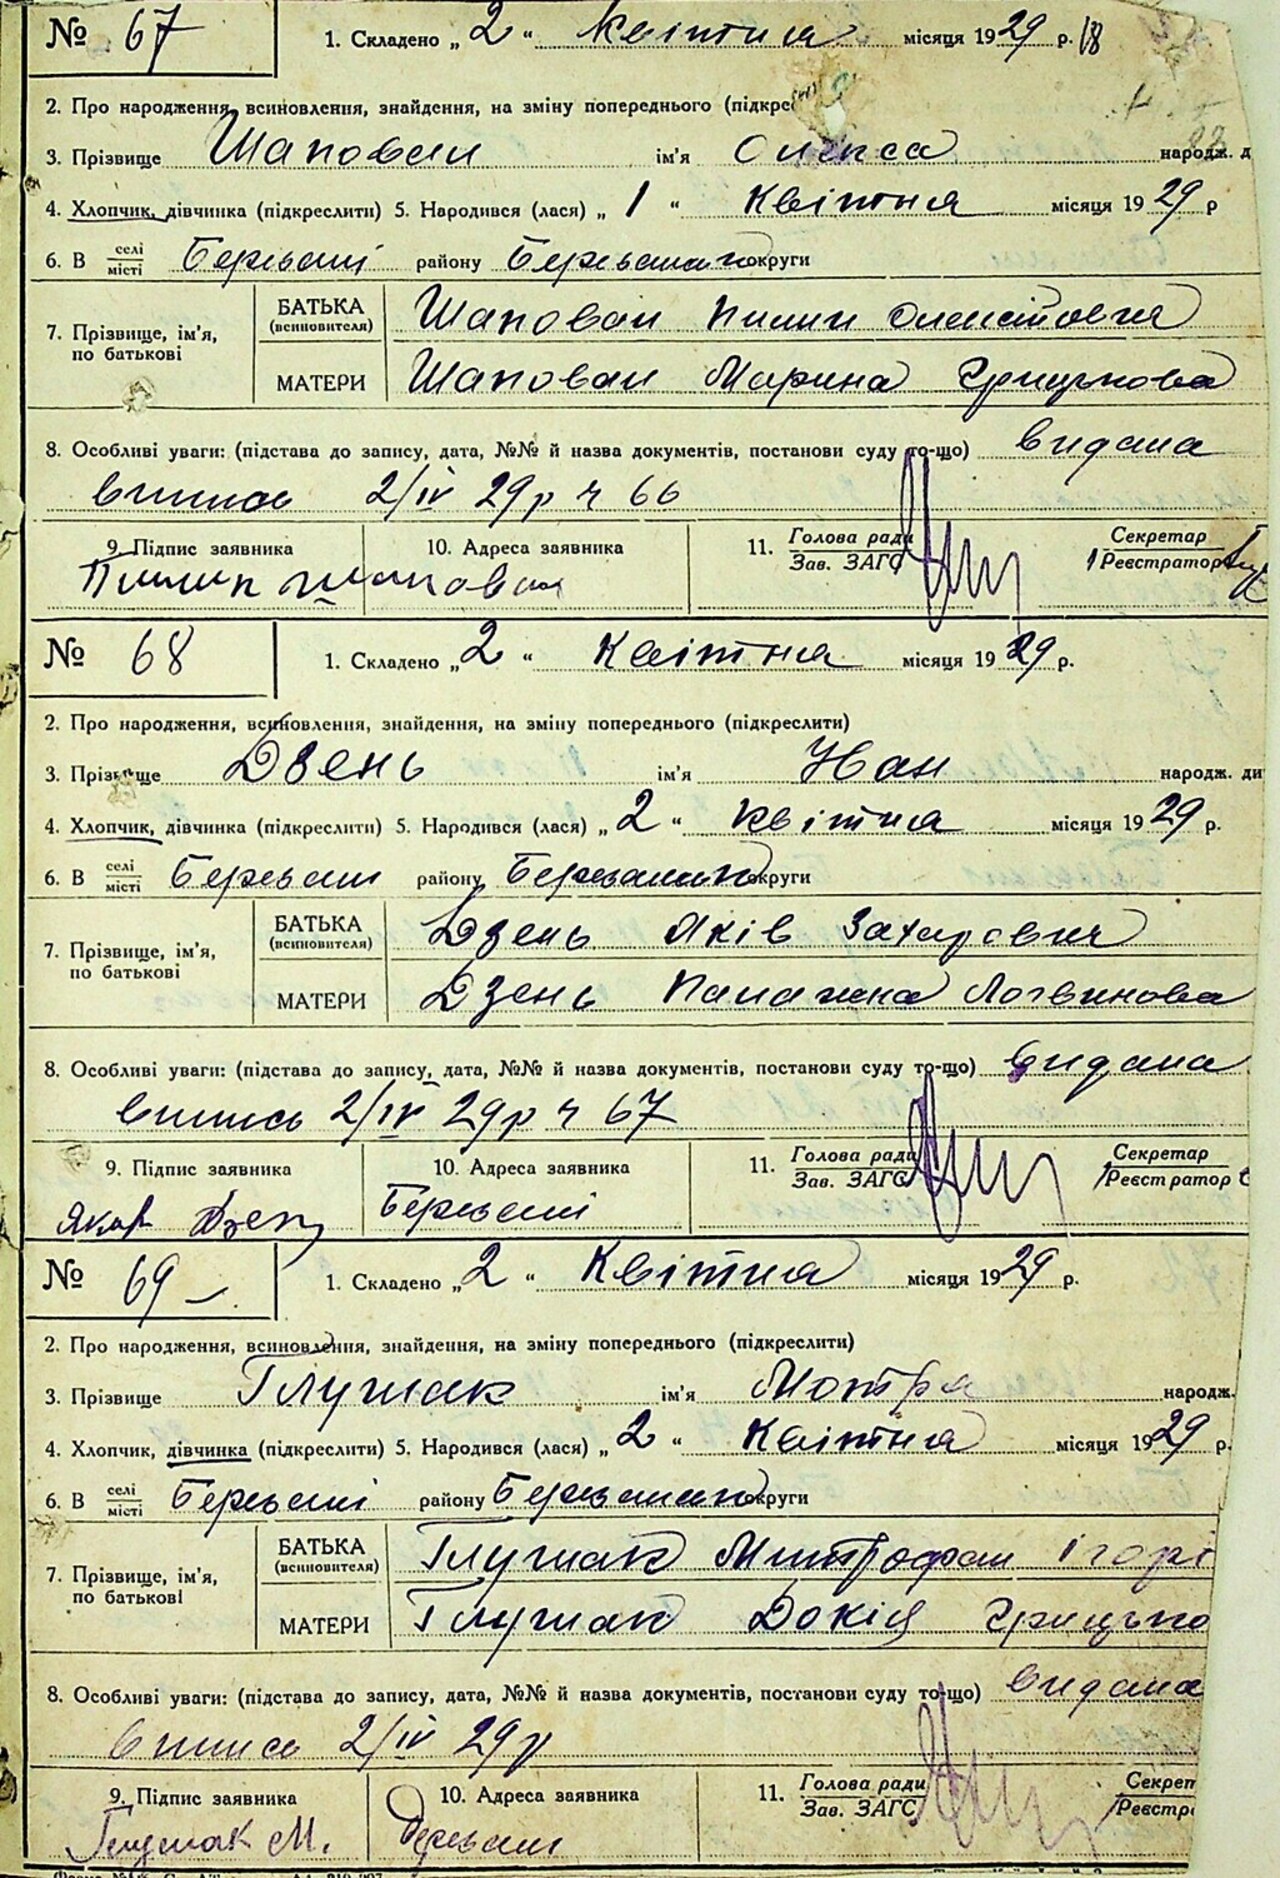 № 67 1. Складено „ 2 “ Квітня місяця 1929 р.
2. Про народження, всиновлення, знайдення, на зміну попереднього (підкре
3. Прізвище Шаповал ім'я Олекса народж. д
4. Хлопчик, дівчинка (підкреслити) 5. Народився (лася) „ 1 “ Квітня місяця 1929 р
6. В селі місті Березані району Березанськ округи
7. Прізвище, ім'я, по батькові БАТЬКА (всиновителя) Шаповал Пилип Олексійович
МАТЕРИ Шаповал Марина Грицькова
8. Особливі уваги: (підстава до запису, дата, №№ й назва документів, постанови суду то-що) видана
випись 2/IV 29р ч 66
9. Підпис заявника 10. Адреса заявника 11. Голова ради Зав. ЗАГС Секретар Реєстратор
Пилип Шаповал
№ 68 1. Складено „ 2 “ Квітня місяця 1929 р.
2. Про народження, всиновлення, знайдення, на зміну попереднього (підкреслити)
3. Прізвище Дзень ім'я Іван народж. ди
4. Хлопчик, дівчинка (підкреслити) 5. Народився (лася) „ 2 “ Квітня місяця 1929 р.
6. В селі місті Березані району Березанськ округи
7. Прізвище, ім'я, по батькові БАТЬКА (всиновителя) Дзень Яків Захарович
МАТЕРИ Дзень Палажка Логвинова
8. Особливі уваги: (підстава до запису, дата, №№ й назва документів, постанови суду то-що) видана
випись 2/IV 29р ч 67
9. Підпис заявника 10. Адреса заявника 11. Голова ради Зав. ЗАГС Секретар Реєстратор
Березані
№ 69 1. Складено „ 2 “ Квітня місяця 1929 р.
2. Про народження, всиновлення, знайдення, на зміну попереднього (підкреслити)
3. Прізвище Глушак ім'я Мотря народж.
4. Хлопчик, дівчинка (підкреслити) 5. Народився (лася) „ 2 “ Квітня місяця 1929 р.
6. В селі місті Березані району Березанськ округи
7. Прізвище, ім'я, по батькові БАТЬКА (всиновителя) Глушак Митрофан Ігорі
МАТЕРИ Глушак Докія Грицько
8. Особливі уваги: (підстава до запису, дата, №№ й назва документів, постанови суду то-що) видана
випись 2/IV 29р
9. Підпис заявника 10. Адреса заявника 11. Голова ради Зав. ЗАГС Секрет Реєстр
Глушак М. Березані